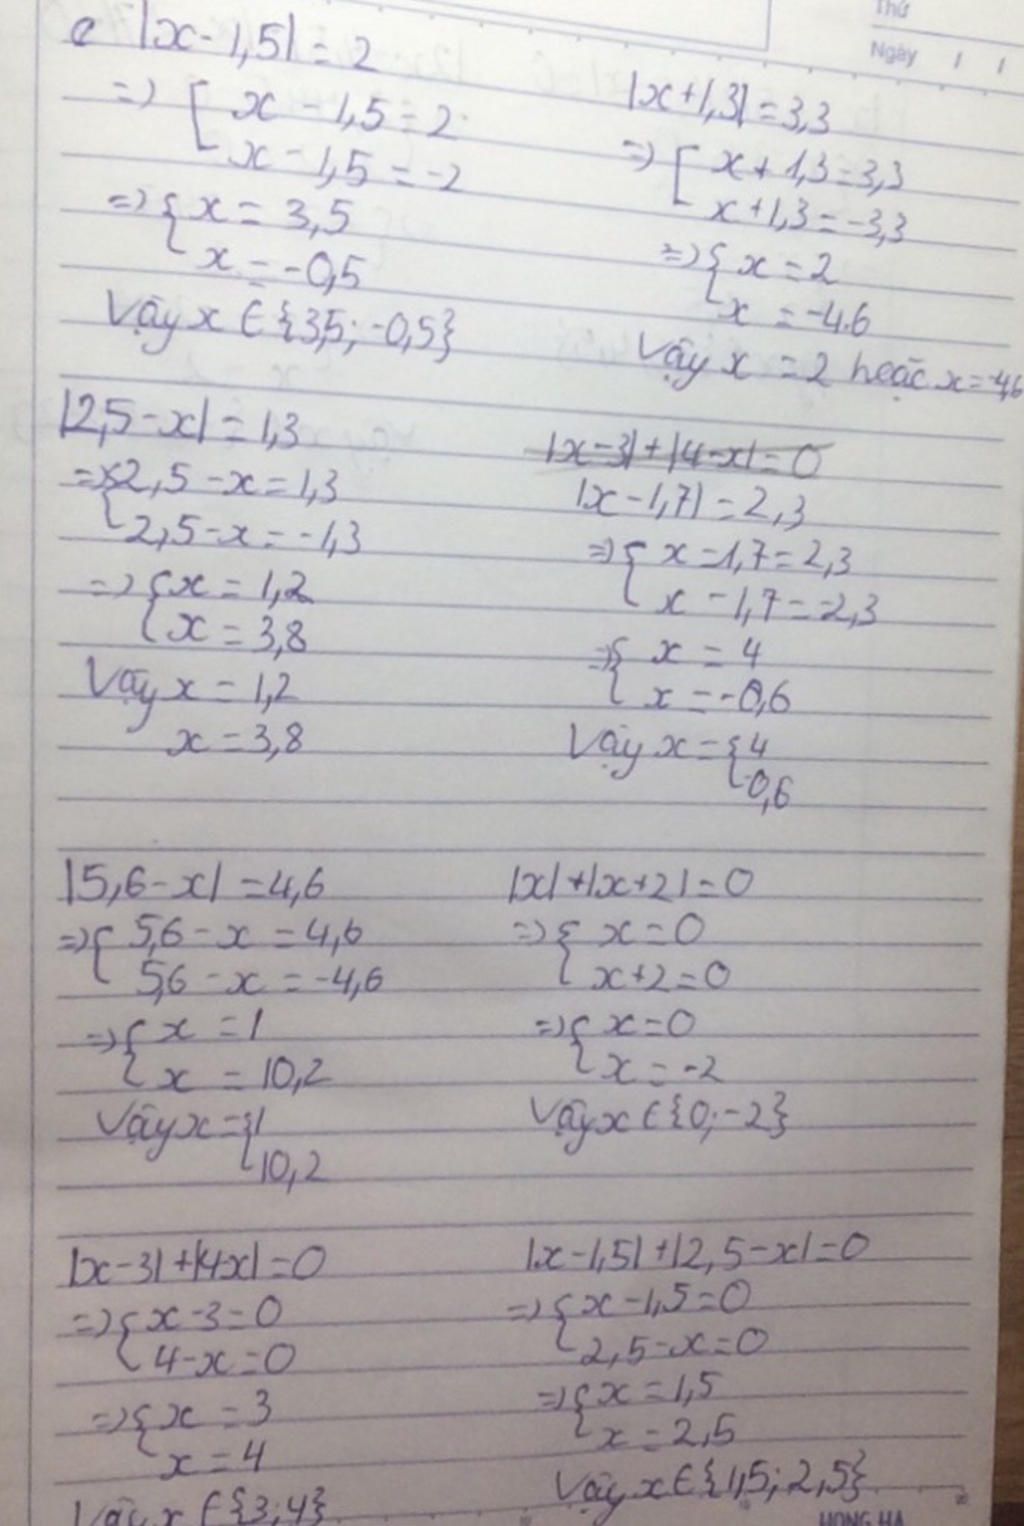 Thứ
Ngày / /
e |x - 1,5| = 2
=> [ x - 1,5 = 2
x - 1,5 = -2
=> { x = 3,5
x = -0,5
Vậy x ∈ {3,5; -0,5}
|x + 1,3| = 3,3
=> [ x + 1,3 = 3,3
x + 1,3 = -3,3
=> { x = 2
x = -4.6
Vậy x = 2 hoặc x = -4,6
|2,5 - x| = 1,3
=> { 2,5 - x = 1,3
2,5 - x = -1,3
=> { x = 1,2
x = 3,8
Vậy x = 1,2
x = 3,8
|x - 3| + |4 - x| = 0
|x - 1,7| = 2,3
=> { x - 1,7 = 2,3
x - 1,7 = -2,3
=> { x = 4
x = -0,6
Vậy x = { 4
-0,6
|5,6 - x| = 4,6
=> { 5,6 - x = 4,6
5,6 - x = -4,6
=> { x = 1
x = 10,2
Vậy x = { 1
10,2
|x| + |x + 2| = 0
=> { x = 0
x + 2 = 0
=> { x = 0
x = -2
Vậy x ∈ {0; -2}
|x - 3| + |4 - x| = 0
=> { x - 3 = 0
4 - x = 0
=> { x = 3
x = 4
Vậy x ∈ {3; 4}
|x - 1,5| + |2,5 - x| = 0
=> { x - 1,5 = 0
2,5 - x = 0
=> { x = 1,5
x = 2,5
Vậy x ∈ {1,5; 2,5}
HONG HA